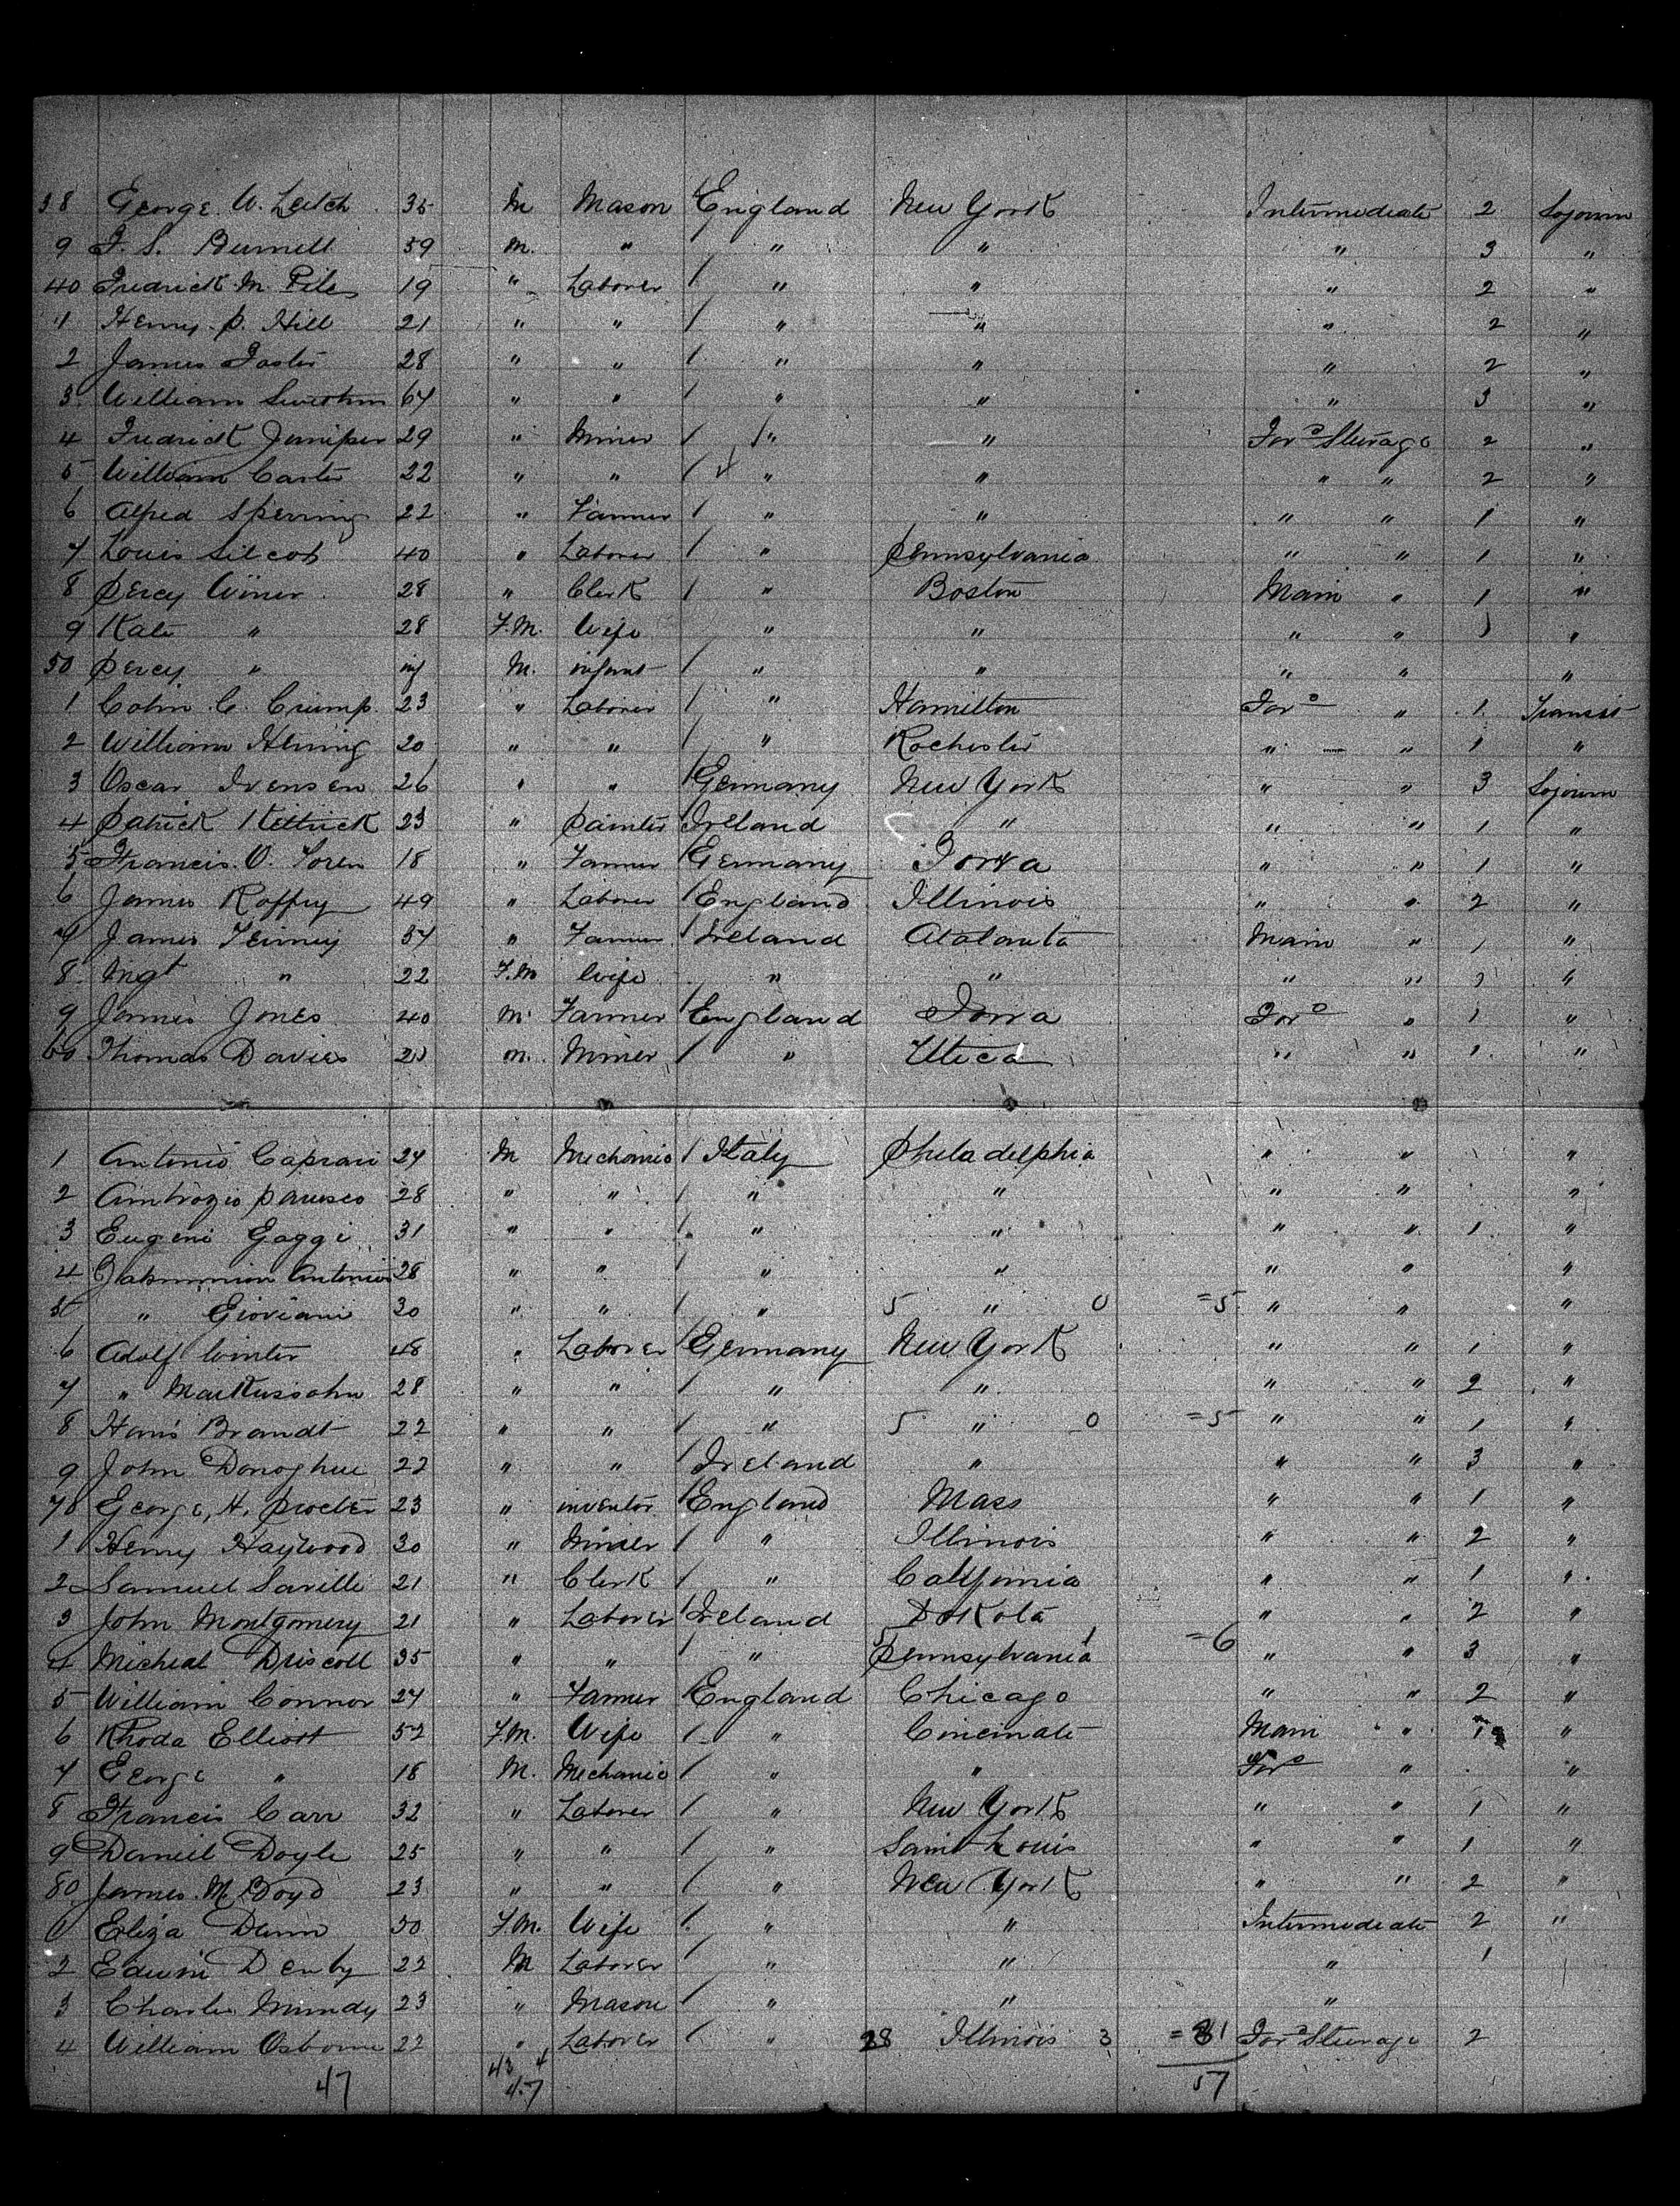 38 George W. Leitch 35 M Mason England New York Intermediate 2 Sojourn
9 F. S. Burnell 39 M. " " " " 3 "
40 Fredrick M. Piles 19 " Laborer / " " " 2 "
1 Henry P. Hill 21 " " / " " " 2 "
2 James Foster 28 " " / " " " 2 "
3 William 64 " " / " " " 3 "
4 Fredrick Juniper 29 " Miner / " " For'd Steerage 2 "
5 William Carter 22 " " / " " " " 2 "
6 Alfred Sperring 22 " Farmer / " " " " 1 "
7 Louis Silcob 40 " Laborer / " Pennsylvania " " 1 "
8 Percy Winer 28 " Clerk / " Boston Main " 1 "
9 Kate " 28 F.M. Wife " " " " 1 "
50 Percy " inf M. infant / " " " " "
1 Colin C. Crump 23 " Laborer / " Hamilton For'd " 1 Transit
2 William 20 " " / " Rochester " " 1 "
3 Oscar Ivensen 26 " " / Germany New York " " 3 Sojourn
4 Patrick Kittrick 23 " Painter Ireland " " " 1 "
5 Francis O. Loren 18 " Farmer / Germany Iowa " " 1 "
6 James Roffey 49 " Laborer / England Illinois " " 2 "
7 James 34 " Farmer / Ireland Atalanta Main " 1 "
8 Mgt " 22 F.M Wife " " " " 1 "
9 James Jones 40 M. Farmer / England Iowa For'd " 1 "
60 Thomas Davies M. Miner / " Utica " " 1 "
1 Antonio Caprari 24 M Mechanic / Italy Philadelphia " " "
2 Ambrozio 28 " " / " " " " "
3 Eugeni Gaggi 31 " " / " " " " 1 "
4 Antonio 28 " " / " " " " "
5 " Gioviani 30 " " / " 5 " 0 =5 " " "
6 Adolf Winter 48 " Laborer / Germany New York " " 1 "
7 " Markussohn 28 " " / " " " " 2 "
8 Hans Brandt 22 " " / " 5 " 0 =5 " " 1 "
9 John Donoghue 22 " " / Ireland " " " 3 "
70 George, H. Procter 23 " inventor / England Mass " " 1 "
1 Henry Haywood 30 " Miner / " Illinois " " 2 "
2 Samuel Saville 21 " Clerk / " California " " 1 "
3 John Montgomery 21 " Laborer / Ireland Dakota " " 2 "
4 Micheal Driscoll 35 " " / " 5 Pennsylvania 1 =6 " " 3 "
5 William Connor 24 " Farmer / England Chicago " " 2 "
6 Rhoda Elliott 52 F.M. Wife / " Cincinate Main " 1 "
7 George " 18 M. Mechanic / " " For'd " "
8 Francis Carr 32 " Laborer / " New York " " 1 "
9 Daniel Doyle 25 " " / " Saint Louis " " 1 "
80 James McBoyd 23 " " / " New York " " 2 "
1 Eliza Dunn 30 F.M. Wife / " " Intermediate 2 "
2 Edwin Denby 22 M Laborer / " " " 1
3 Charlie Mundy 23 " Mason / " " "
4 William Osborne 22 " Laborer / " 28 Illinois 3 =31 For'd Steerage 2
47 43 4 47 57